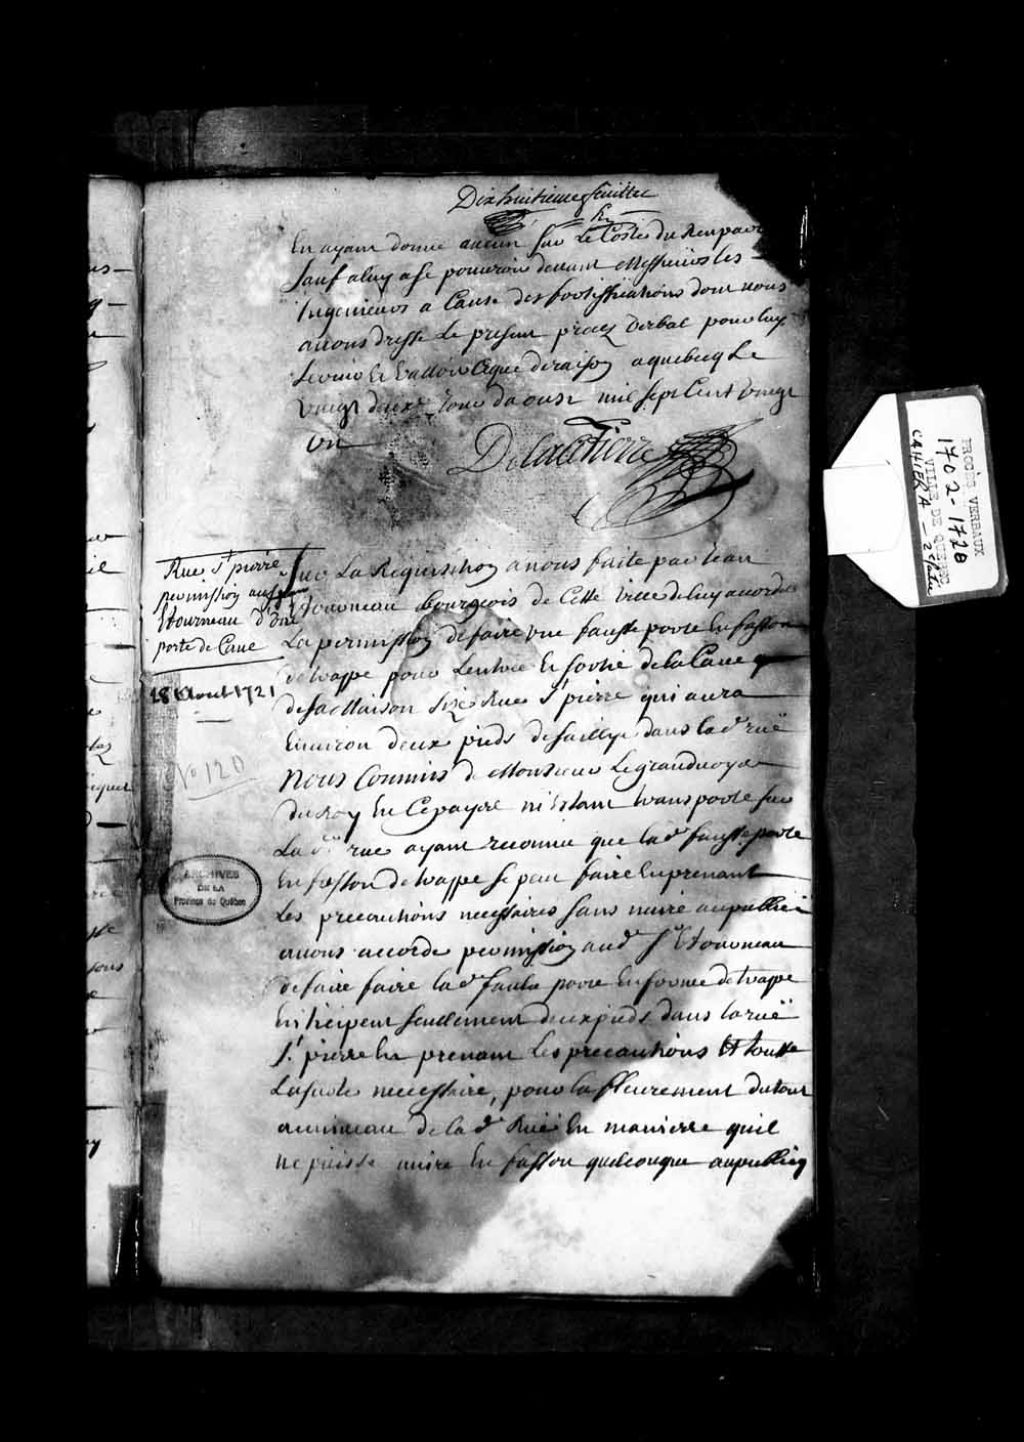 Dixhuitieme feuillet
En ayant donné aucun sur Le Costé du Rempart
sauf a luy a se pourvoir devant Messieurs les
Ingenieurs a Cause des fortiffications dont nous
avons dressé Le present procez Verbal pour luy
servir Et valloir Ceque de raison a quebecq Le
vingt deuxe Jour daoust mil sept Cent vingt
un
Delacetierre
Rue St pierre
permission au sr
Etourneau d'une
porte de Cave
28 Aout 1721
No 120
Sur La Requisition a nous faite par Jean
Etourneau bourgeois de Cette ville de luy accorder
La permission de faire une fausse porte En fasson
de trappe pour Lentrée Et sortie de la Cave
de sa Maison size Rue St pierre qui aura
Environ deux pieds de saillye dans lad rüe
Nous Commis de Monsieur Le grand voyer
du Roy En Ce payse m'estant transporté sur
La de rue ayant reconnu que la de fausse porte
En fasson de trappe se peut faire En prenant
Les precautions necessaires sans nuire au publicq
avons accordé permission aud Sr Etourneau
de faire faire lad fausse porte En forme de trappe
Enticipent seullement deux pieds dans la rüe
St pierre En prenant Les precautions Et toutte
La sureté necessaire, pour lafleurement du tout
au niveau de la de Rüe En maniere quil
ne puisse nuire En fasson quelconque au publicq
ARCHIVES
DE LA
Province de Québec
PROCÈS VERBAUX
1702-1728
VILLE DE QUÉBEC
CAHIER A